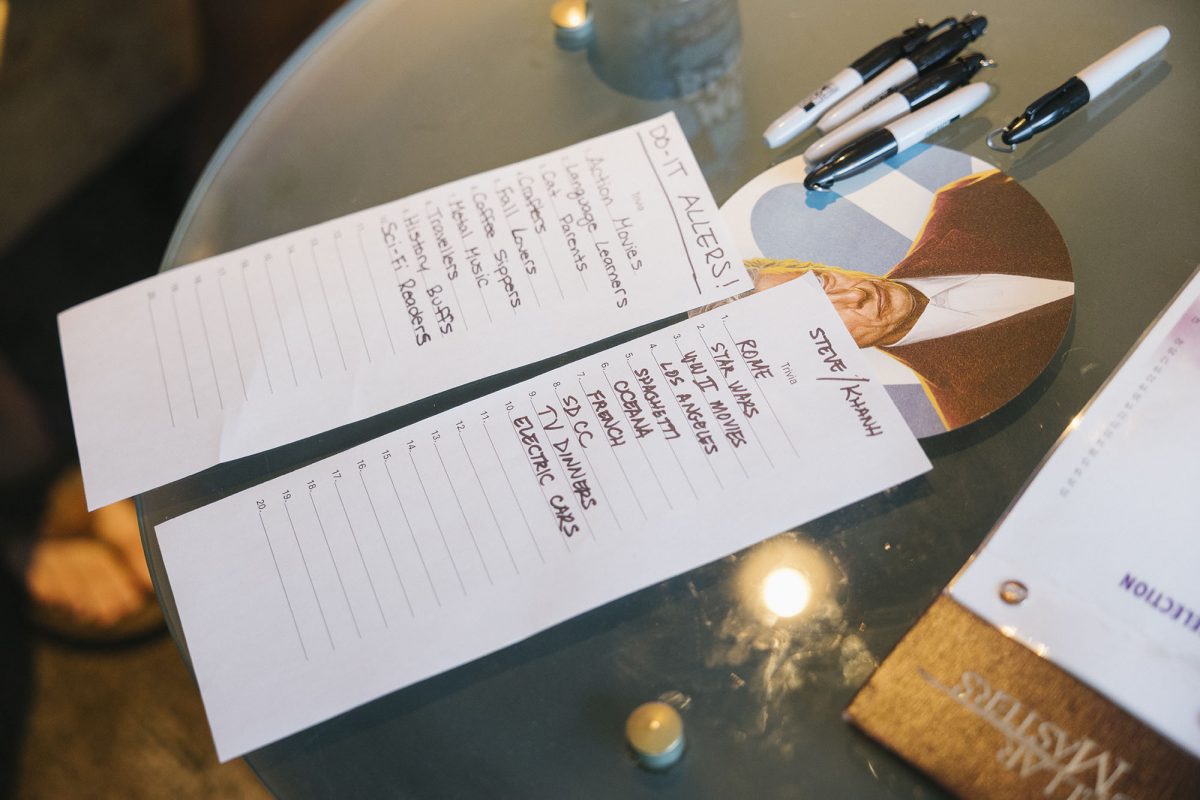 DO-IT ALLERS!
Trivia
1. Action Movies
2. Language Learners
3. Cat Parents
4. Crafters
5. Fall Lovers
6. Coffee Sippers
7. Metal Music
8. Travellers
9. History Buffs
10. Sci-Fi Readers
11.
12.
13.
14.
15.
16.
17.
18.
19.
20.
STEVE/KHANH
Trivia
1. ROME
2. STAR WARS
3. WWII MOVIES
4. LOS ANGELES
5. SPAGHETTI
6. OCEANA
7. FRENCH
8. SDCC
9. TV DINNERS
10. ELECTRIC CARS
11.
12.
13.
14.
15.
16.
17.
18.
19.
20.
MASTERS